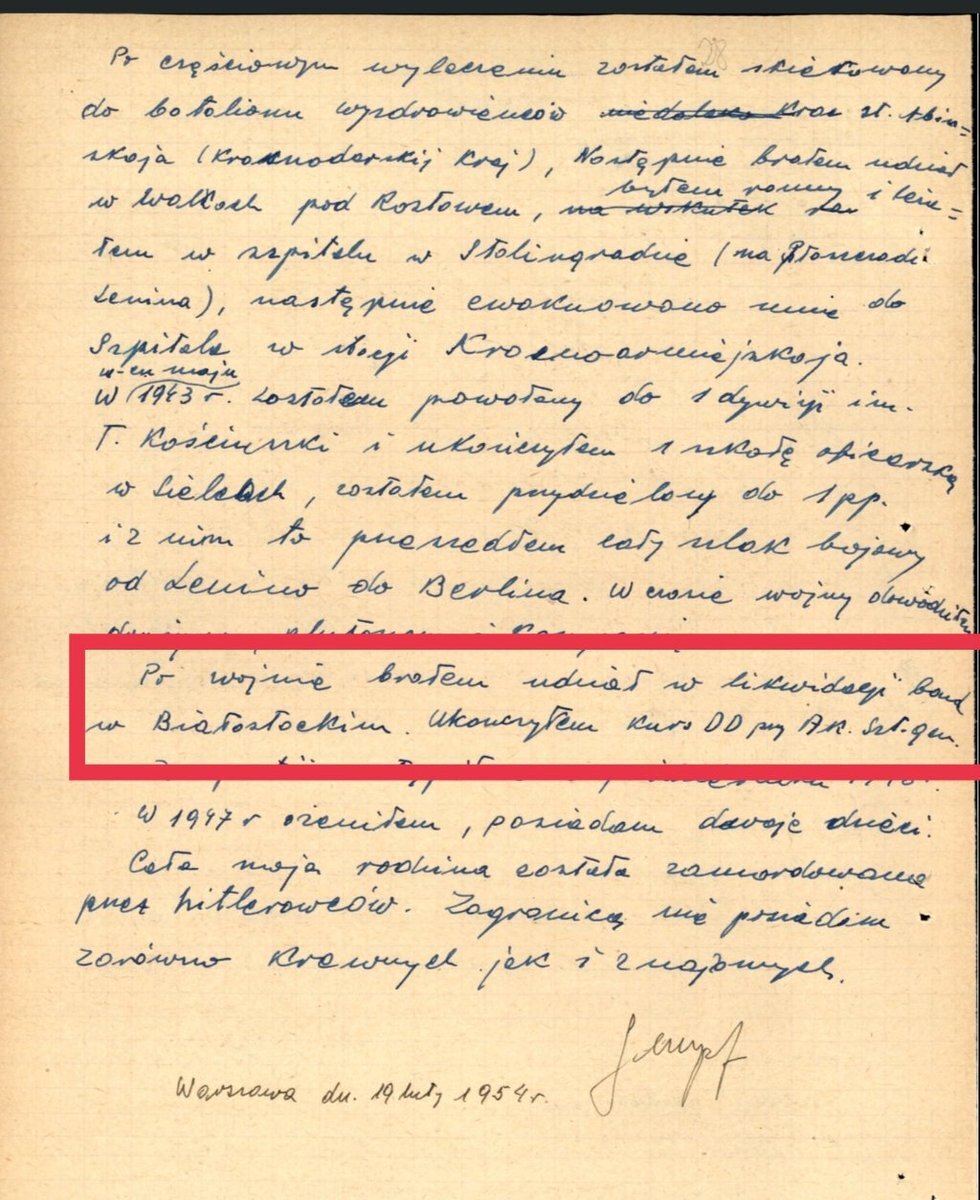 28
Po częściowym wyleczeniu zostałem skierowany
do batalionu wyzdrowieńców niedaleko Kras st. Abin=
skaja (Krasnodarskij Kraj), Następnie brałem udział
w walkach pod Rostowem, na wskutek ran byłem ranny i leża=
łem w szpitalu w Stalingradzie (na Płoszczadi
Lenina), następnie ewakuowano mnie do
Szpitala w stacji Krasnoarmiejskaja.
W 1943 r. w-cu maju zostałem powołany do 1 dywizji im.
T. Kościuszki i ukończyłem szkołę oficerską
w Sielcach, zostałem przydzielony do 1 pp.
i z nim to przeszedłem cały szlak bojowy
od Lenino do Berlina. W czasie wojny dowodziłem
Po wojnie brałem udział w likwidacji band
w Białostockim. Ukończyłem kurs DD przy Ak. Szt. gen.
W 1947 r ożeniłem, posiadam dwoje dzieci.
Cała moja rodzina została zamordowana
przez hitlerowców. Zagranicą nie posiadam
zarówno krewnych jak i znajomych.
Warszawa dn. 19 luty 1954 r.